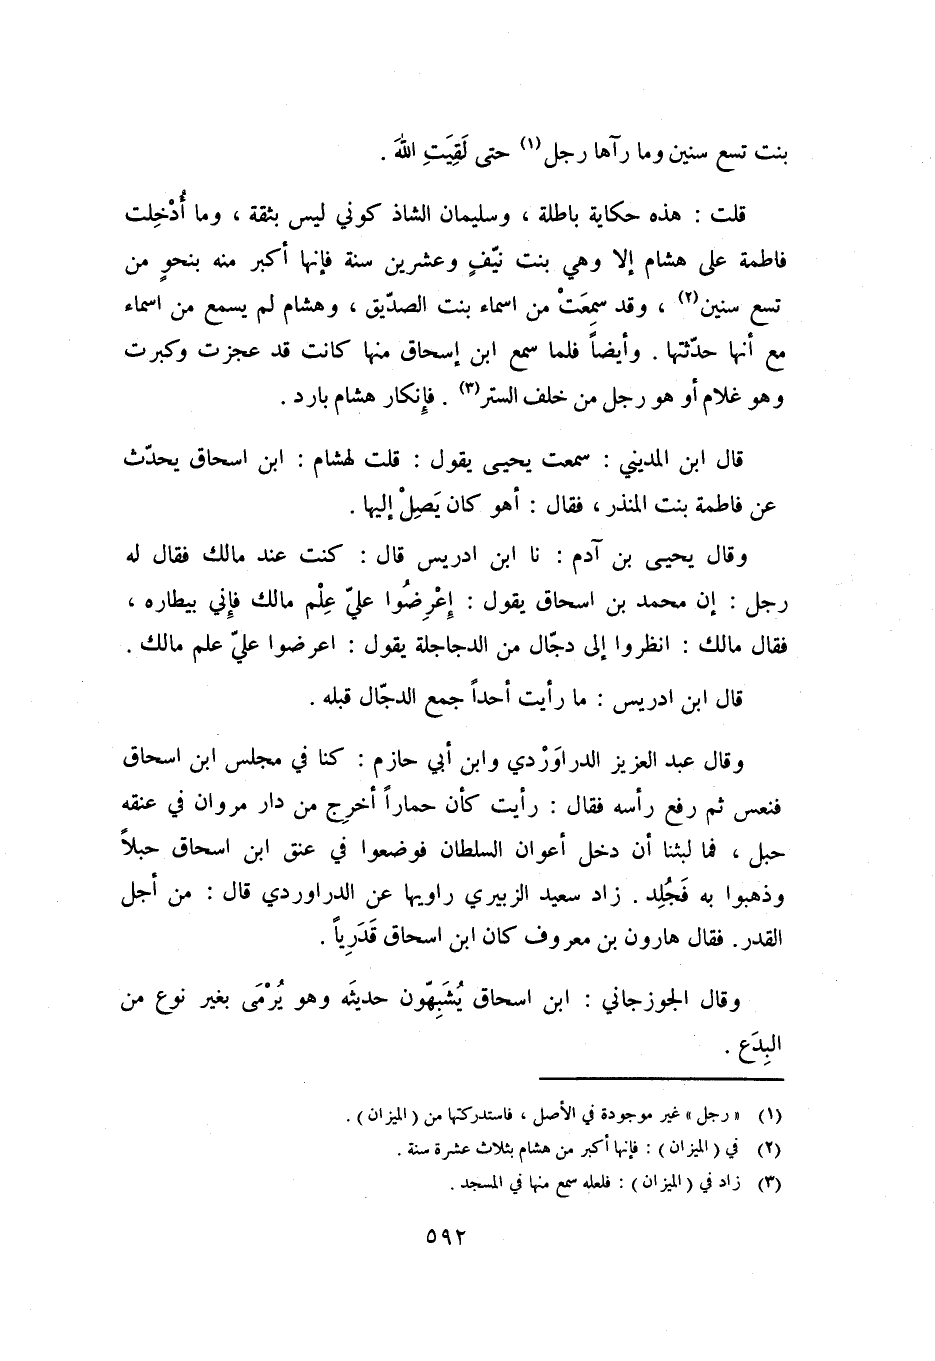 بنت تسع سنين وما رآها رجل(١) حتى لَقِيَتِ اللهَ .
قلت : هذه حكاية باطلة ، وسليمان الشاذ كوني ليس بثقة ، وما أُدْخِلت
فاطمة على هشام إلا وهي بنت نيّفٍ وعشرين سنة فإنها أكبر منه بنحوٍ من
تسع سنين(٢) ، وقد سمِعَتْ من اسماء بنت الصدّيق ، وهشام لم يسمع من اسماء
مع أنها حدّثتها . وأيضاً فلما سمع ابن إسحاق منها كانت قد عجزت وكبرت
وهو غلام أو هو رجل من خلف الستر(٣) . فإنكار هشام بارد .
قال ابن المديني : سمعت يحيى يقول : قلت لهشام : ابن اسحاق يحدّث
عن فاطمة بنت المنذر ، فقال : أهو كان يَصِلْ إليها .
وقال يحيى بن آدم : نا ابن ادريس قال : كنت عند مالك فقال له
رجل : إن محمد بن اسحاق يقول : إعْرِضُوا عليّ عِلْم مالك فإني بيطاره ،
فقال مالك : انظروا إلى دجّال من الدجاجلة يقول : اعرضوا عليّ علم مالك .
قال ابن ادريس : ما رأيت أحداً جمع الدجّال قبله .
وقال عبد العزيز الدراوَرْدي وابن أبي حازم : كنا في مجلس ابن اسحاق
فنعس ثم رفع رأسه فقال : رأيت كأن حماراً أخرِج من دار مروان في عنقه
حبل ، فما لبثنا أن دخل أعوان السلطان فوضعوا في عنق ابن اسحاق حبلاً
وذهبوا به فَجُلِد . زاد سعيد الزبيري راويها عن الدراوردي قال : من أجل
القدر. فقال هارون بن معروف كان ابن اسحاق قَدَرِياً .
وقال الجوزجاني : ابن اسحاق يُشَبِهّون حديثَه وهو يُرْمَى بغير نوع من
البِدَع .
(١) « رجل » غير موجودة في الأصل ، فاستدركتها من ( الميزان ) .
(٢) في ( الميزان ) : فإنها أكبر من هشام بثلاث عشرة سنة .
(٣) زاد في ( الميزان ) : فلعله سمع منها في المسجد .
٥٩٢